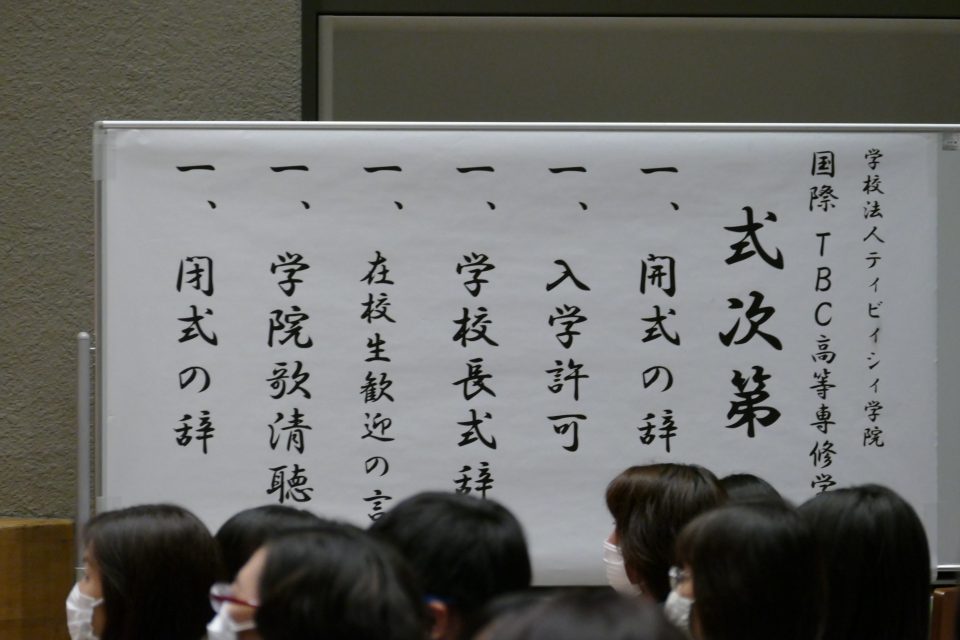 学校法人ティビィシィ学院
国際TBC高等専修学
式次第
一、開式の辞
一、入学許可
一、学校長式辞
一、在校生歓迎の言
一、学院歌清聴
一、閉式の辞